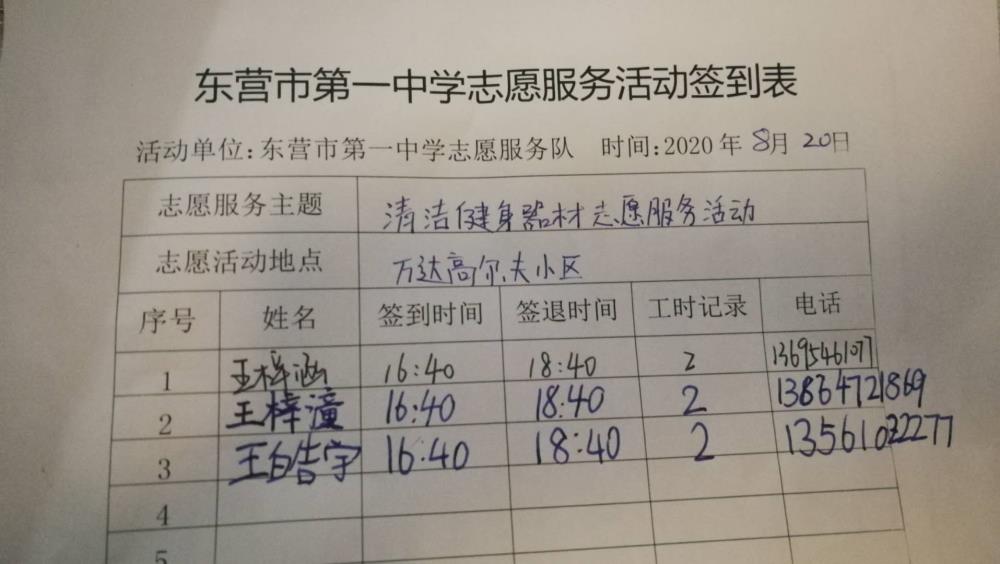 东营市第一中学志愿服务活动签到表
活动单位:东营市第一中学志愿服务队 时间:2020年8月20日
志愿服务主题 清洁健身器材志愿服务活动
志愿活动地点 万达高尔夫小区
序号 姓名 签到时间 签退时间 工时记录 电话
1 王梓涵 16:40 18:40 2 13695461077
2 王梓潼 16:40 18:40 2 13864721869
3 王皓宇 16:40 18:40 2 13561022277
4
5